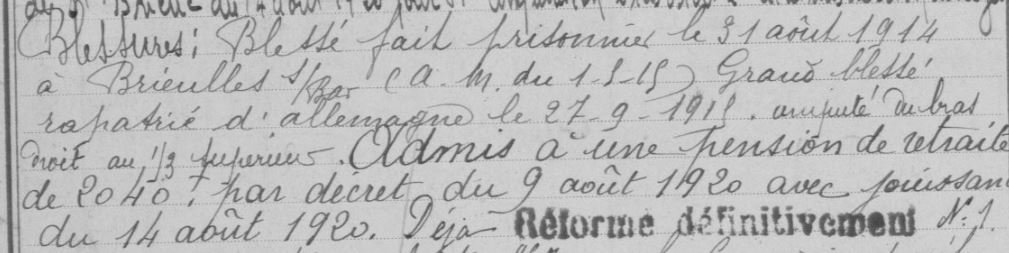 de St Brieuc du 14 août 1920
Blessures: Blessé fait prisonnier le 31 août 1914
à Brieulles s/Bar (a. M. du 1-5-15) Grand blessé
rapatrié d'allemagne le 27-9-1915. amputé du bras
droit au 1/3 superieur. Admis à une pension de retraite
de 2040f par décret du 9 août 1920 avec jouissan
du 14 août 1920. Déjà Réformé définitivement N: 1.